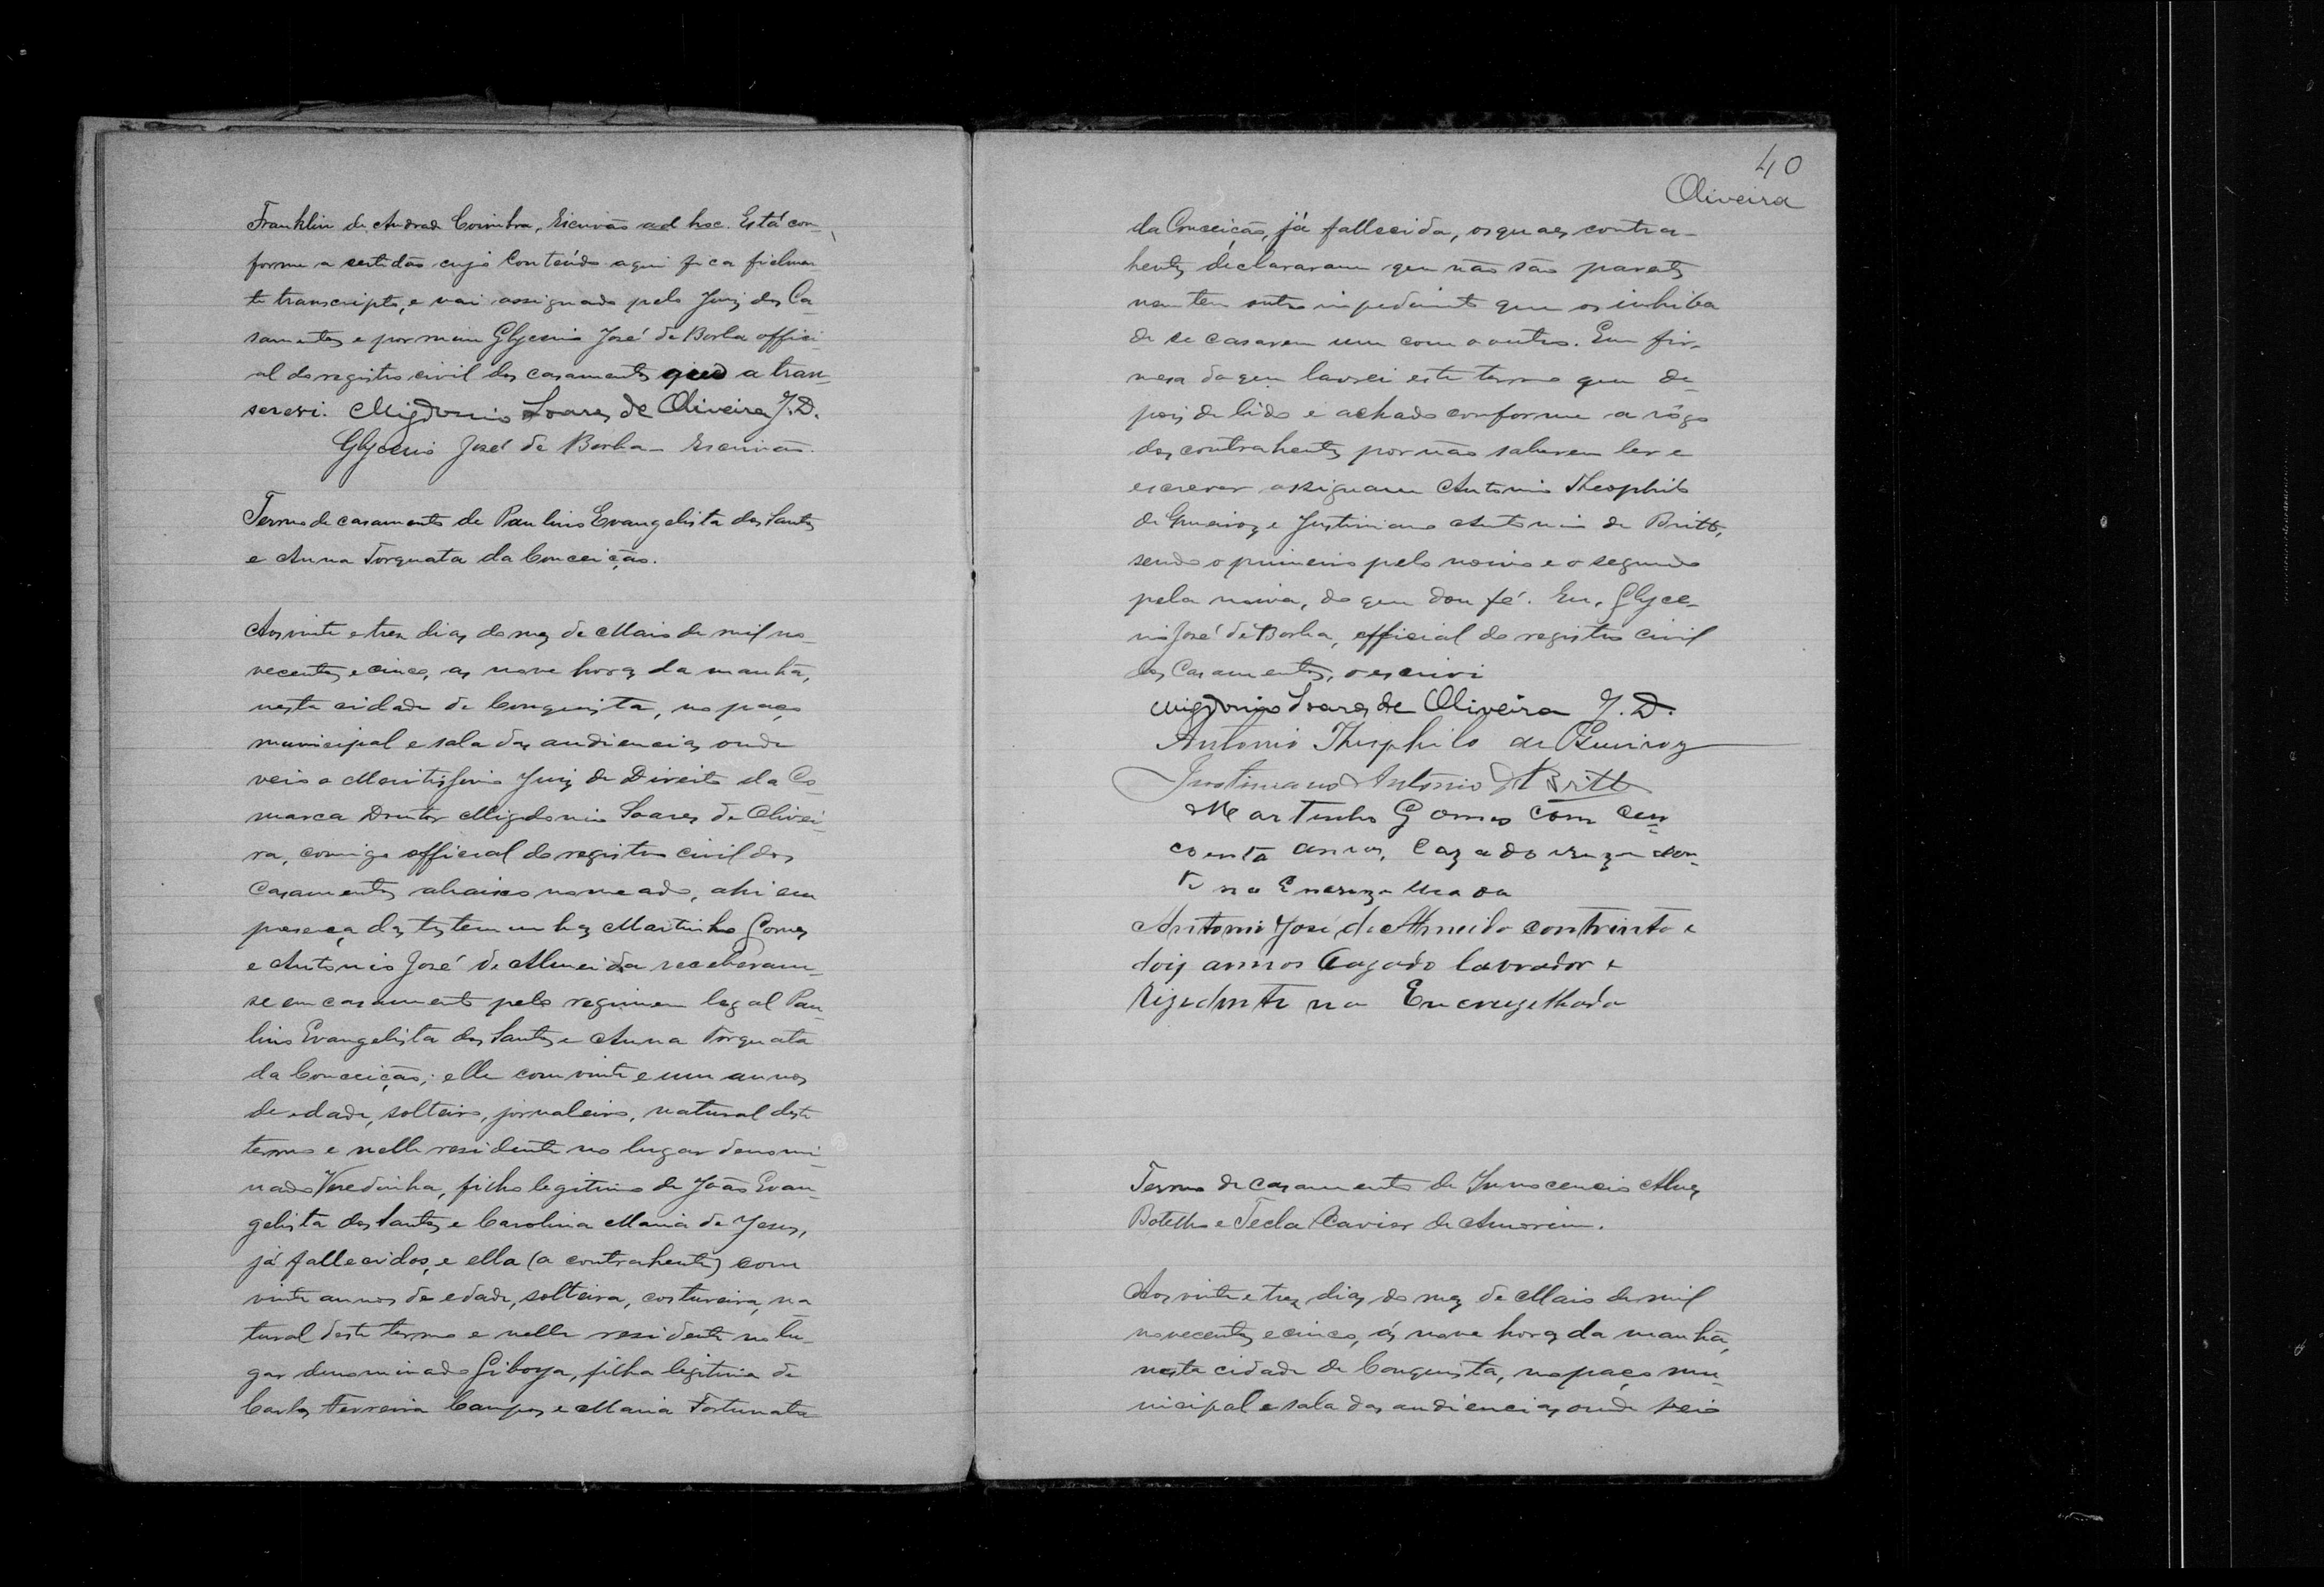 Franklin de Andrade Coimbra, Escrivão ad hoc. Está con-
forme a certidão cujo Conteúdo aqui fica fielmen-
te transcripto, e vai assignado pelo Juiz dos Ca-
samentos e por mim Glycerio José de Borba offici-
al do registro civil dos casamentos que a tran-
screvi. Migdonio Soares de Oliveira J.D.
Glycerio José de Borba - Escrivão.
Termo de casamento de Paulino Evangelista dos Santos
e Anna Torquata da Conceição.
Aos vinte e tres dias do mez de Maio de mil no-
vecentos e cinco, as nove horas da manhã,
nesta cidade de Conquista, no paço
municipal e sala das audiencias onde
veio o Meritissimo Juiz de Direito da Co-
marca Doutor Migdonio Soares de Olivei-
ra, comigo official do registro civil dos
Casamentos abaixo nomeado, ahi em
presença das testemunhas Martinho Gomes
e Antonio José de Almeida receberam-
se em casamento pelo regimen legal Pau-
lino Evangelista dos Santos e Anna Torquata
da Conceição; elle com vinte e um annos
de edade, solteiro, jornaleiro, natural deste
termo e nelle residente no lugar denomi-
nado Veredinha, filho legitimo de João Evan-
gelista dos Santos e Carolina Maria de Jesus,
já fallecidos, e ella (a contrahente) com
vinte annos de edade, solteira, costureira, na
tural deste termo e nelle residente no lu-
gar denominado Giboya, filha legitima de
Carlos Ferreira Campos e Maria Fortunata
40
Oliveira
da Conceição, já fallecida, os quaes contra-
hentes declararam que não são parentes
nem tem outro impedimento que os inhiba
de se casarem um com o outro. Em fir-
meza do que lavrei este termo que de-
pois de lido e achado conforme a rôgo
dos contrahentes por não saberem ler e
escrever assignam Antonio Theophilo
de Queiroz e Justiniano Antonio de Britto,
sendo o primeiro pelo noivo e o segundo
pela noiva, do que dou fé. Eu, Glyce-
rio José de Borba, official do registro civil
dos Casamentos, o escrevi
Migdonio Soares de Oliveira J.D.
Antonio Theophilo de Queiroz
Justiniano Antonio de Britto
Martinho Gomes com cin-
coenta annos, Cazado
no
Antonio José de Almeida com trinta e
dois annos Cazado lavrador e
rizedente na Encruzelhada
Termo de casamento de Innocencio Alves
Botelho e Tecla Xavier de Amorim.
Aos vinte e tres dias do mez de Maio de mil
novecentos e cinco, ás nove horas da manhã,
nesta cidade de Conquista, no paço mu-
nicipal e sala das audiencias onde veio